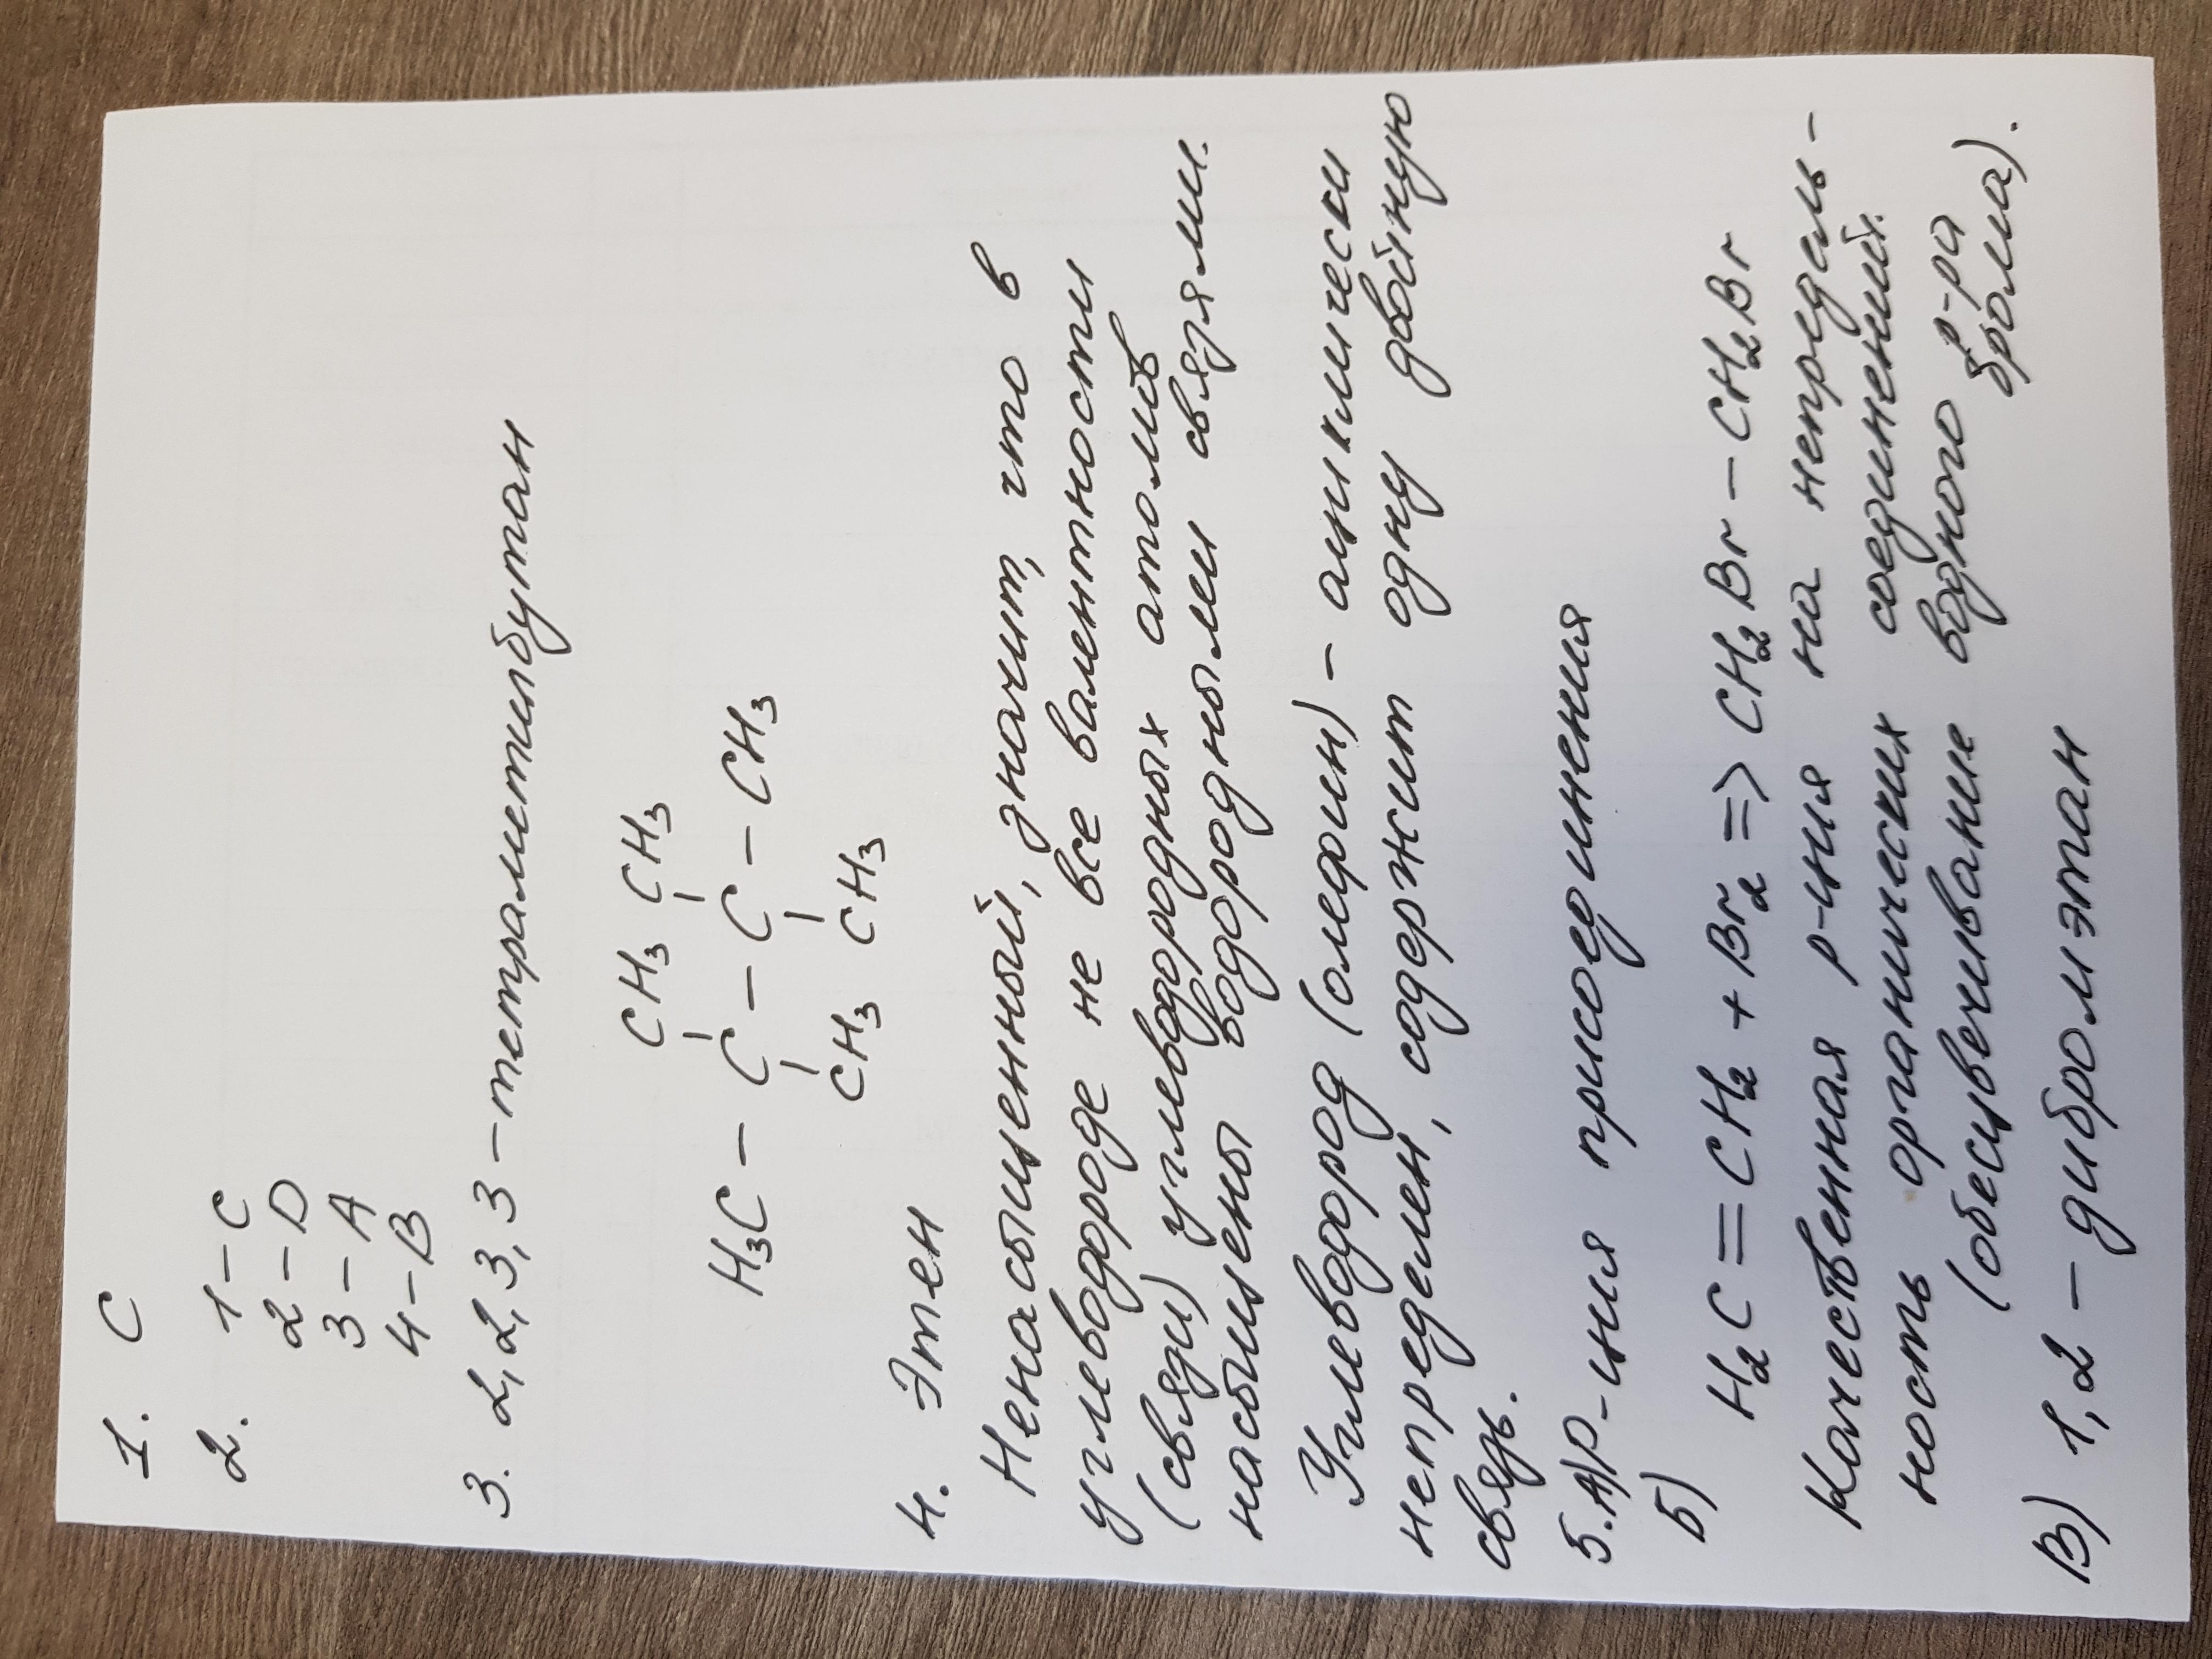 1. С
2. 1 – С
2 – D
3 – А
4 – В
3. 2,2,3,3 – тетраметилбутан
CH3 CH3
H3C – C – C – CH3
CH3 CH3
4. Этен
Ненасыщенный, значит, что в
углеводороде не все валентности
(связи) углеводородных атомов
насыщены водородными связями.
Углеводород (олефин) – ациклически
непределен, содержит одну двойную
связь.
5. А) Р-ния присоединения
Б)
H2C = CH2 + Br2 => CH2Br – CH2Br
Качественная р-ния на непредель-
ность органических соединений.
(обесцвечивание водного р-ра
брома).
В) 1,2 – дибромэтан